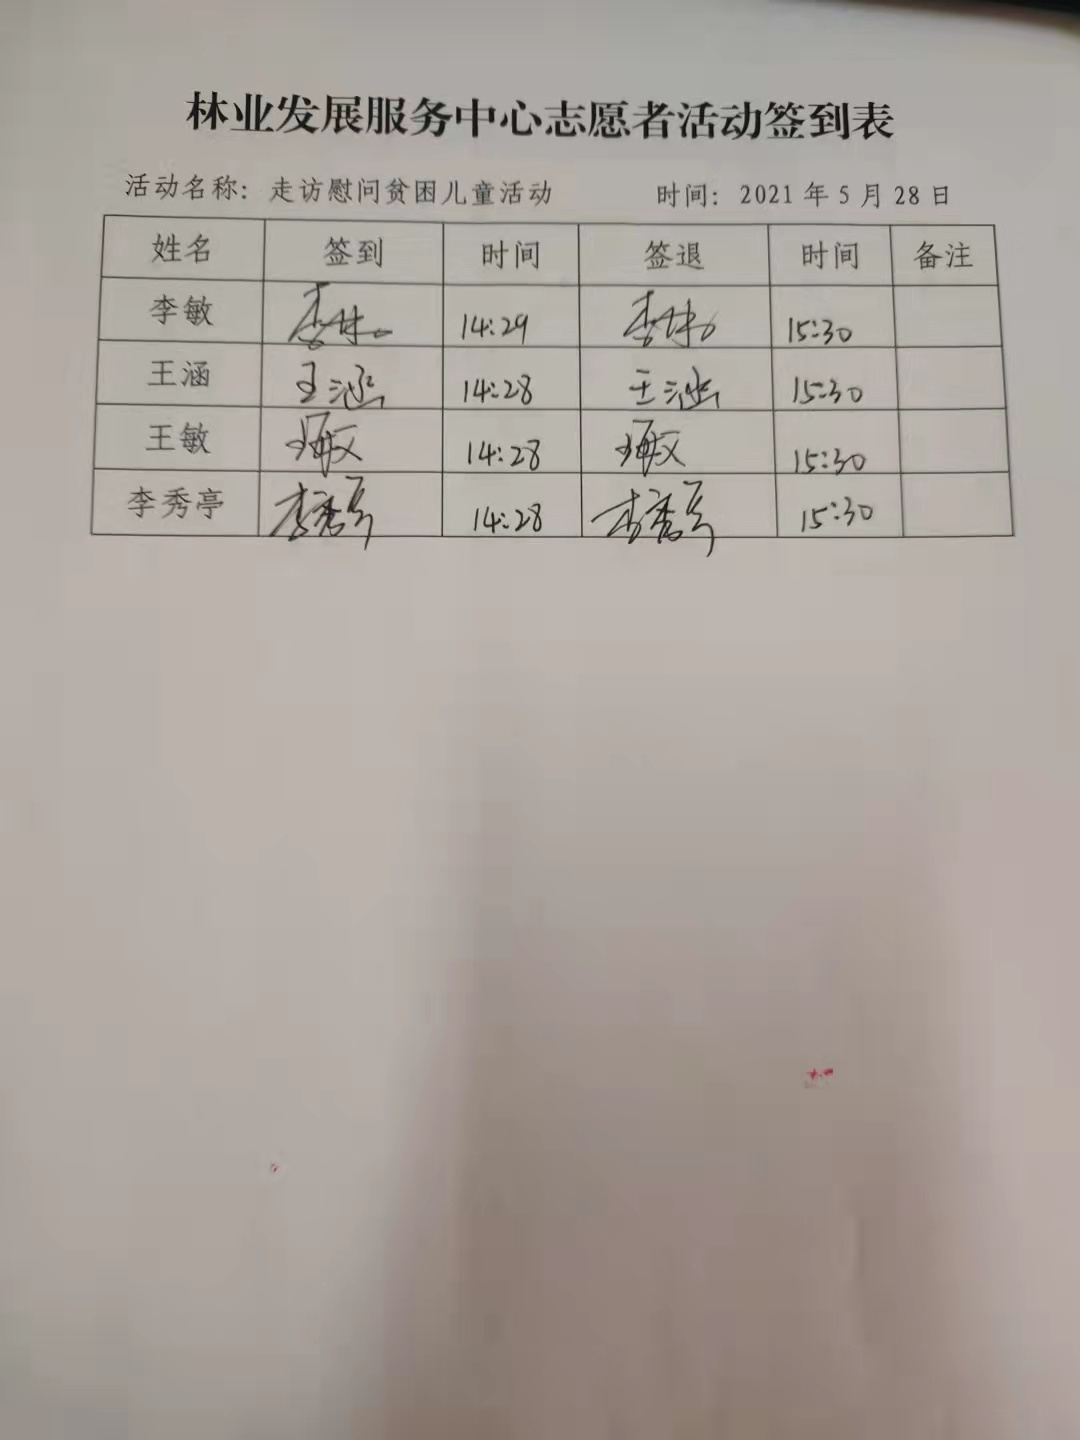 林业发展服务中心志愿者活动签到表
活动名称：走访慰问贫困儿童活动 时间：2021年5月28日
姓名 签到 时间 签退 时间 备注
李敏 李敏 14:29 李敏 15:30
王涵 王涵 14:28 王涵 15:30
王敏 王敏 14:28 王敏 15:30
李秀亭 李秀亭 14:28 李秀亭 15:30